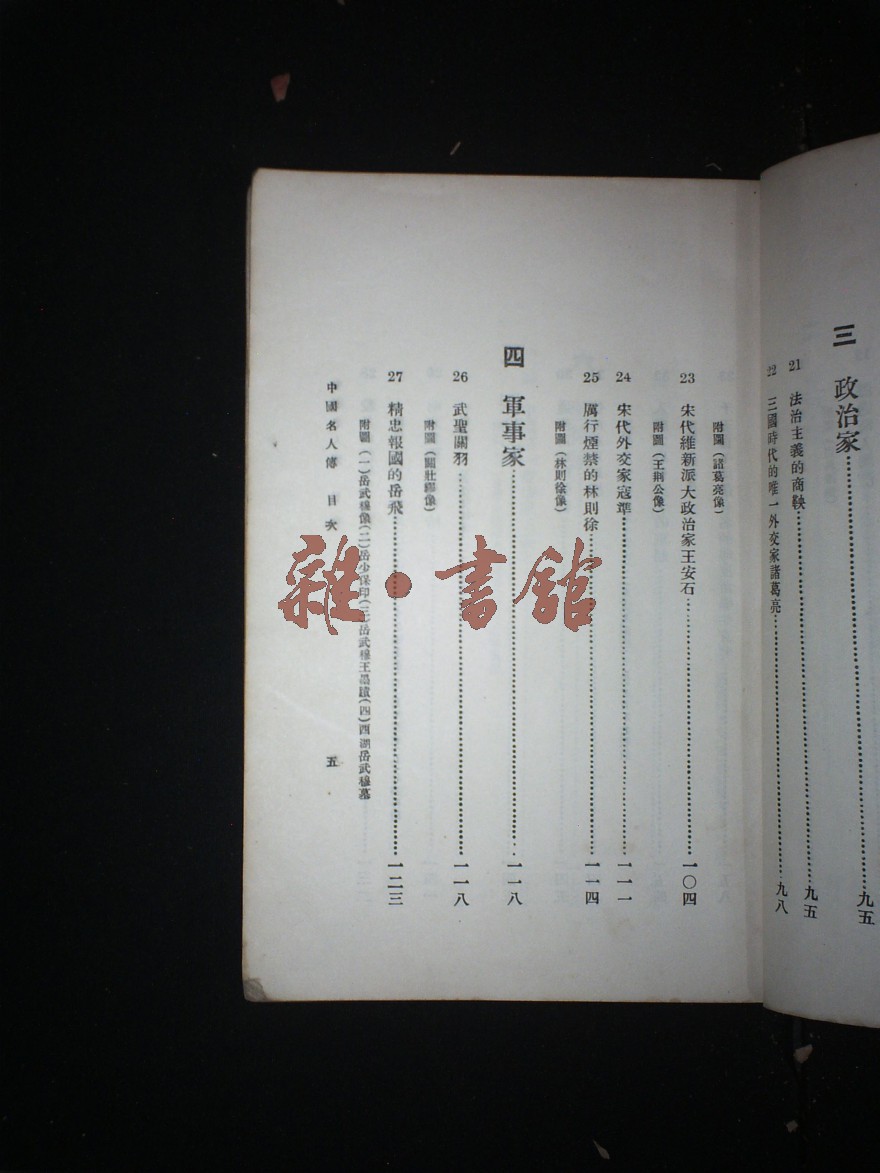 三 政治家……九五
21 法治主義的商鞅……九五
22 三國時代的唯一外交家諸葛亮……九八
附圖(諸葛亮像)
23 宋代維新派大政治家王安石……一〇四
附圖(王荆公像)
24 宋代外交家寇準……一一一
25 厲行煙禁的林則徐……一一四
附圖(林則徐像)
四 軍事家……一一八
26 武聖關羽……一一八
附圖(關壯繆像)
27 精忠報國的岳飛……一二三
附圖(一)岳武穆像(二)岳少保印(三)岳武穆王墨蹟(四)西湖岳武穆墓
中國名人傳 目次 五
雜·書館